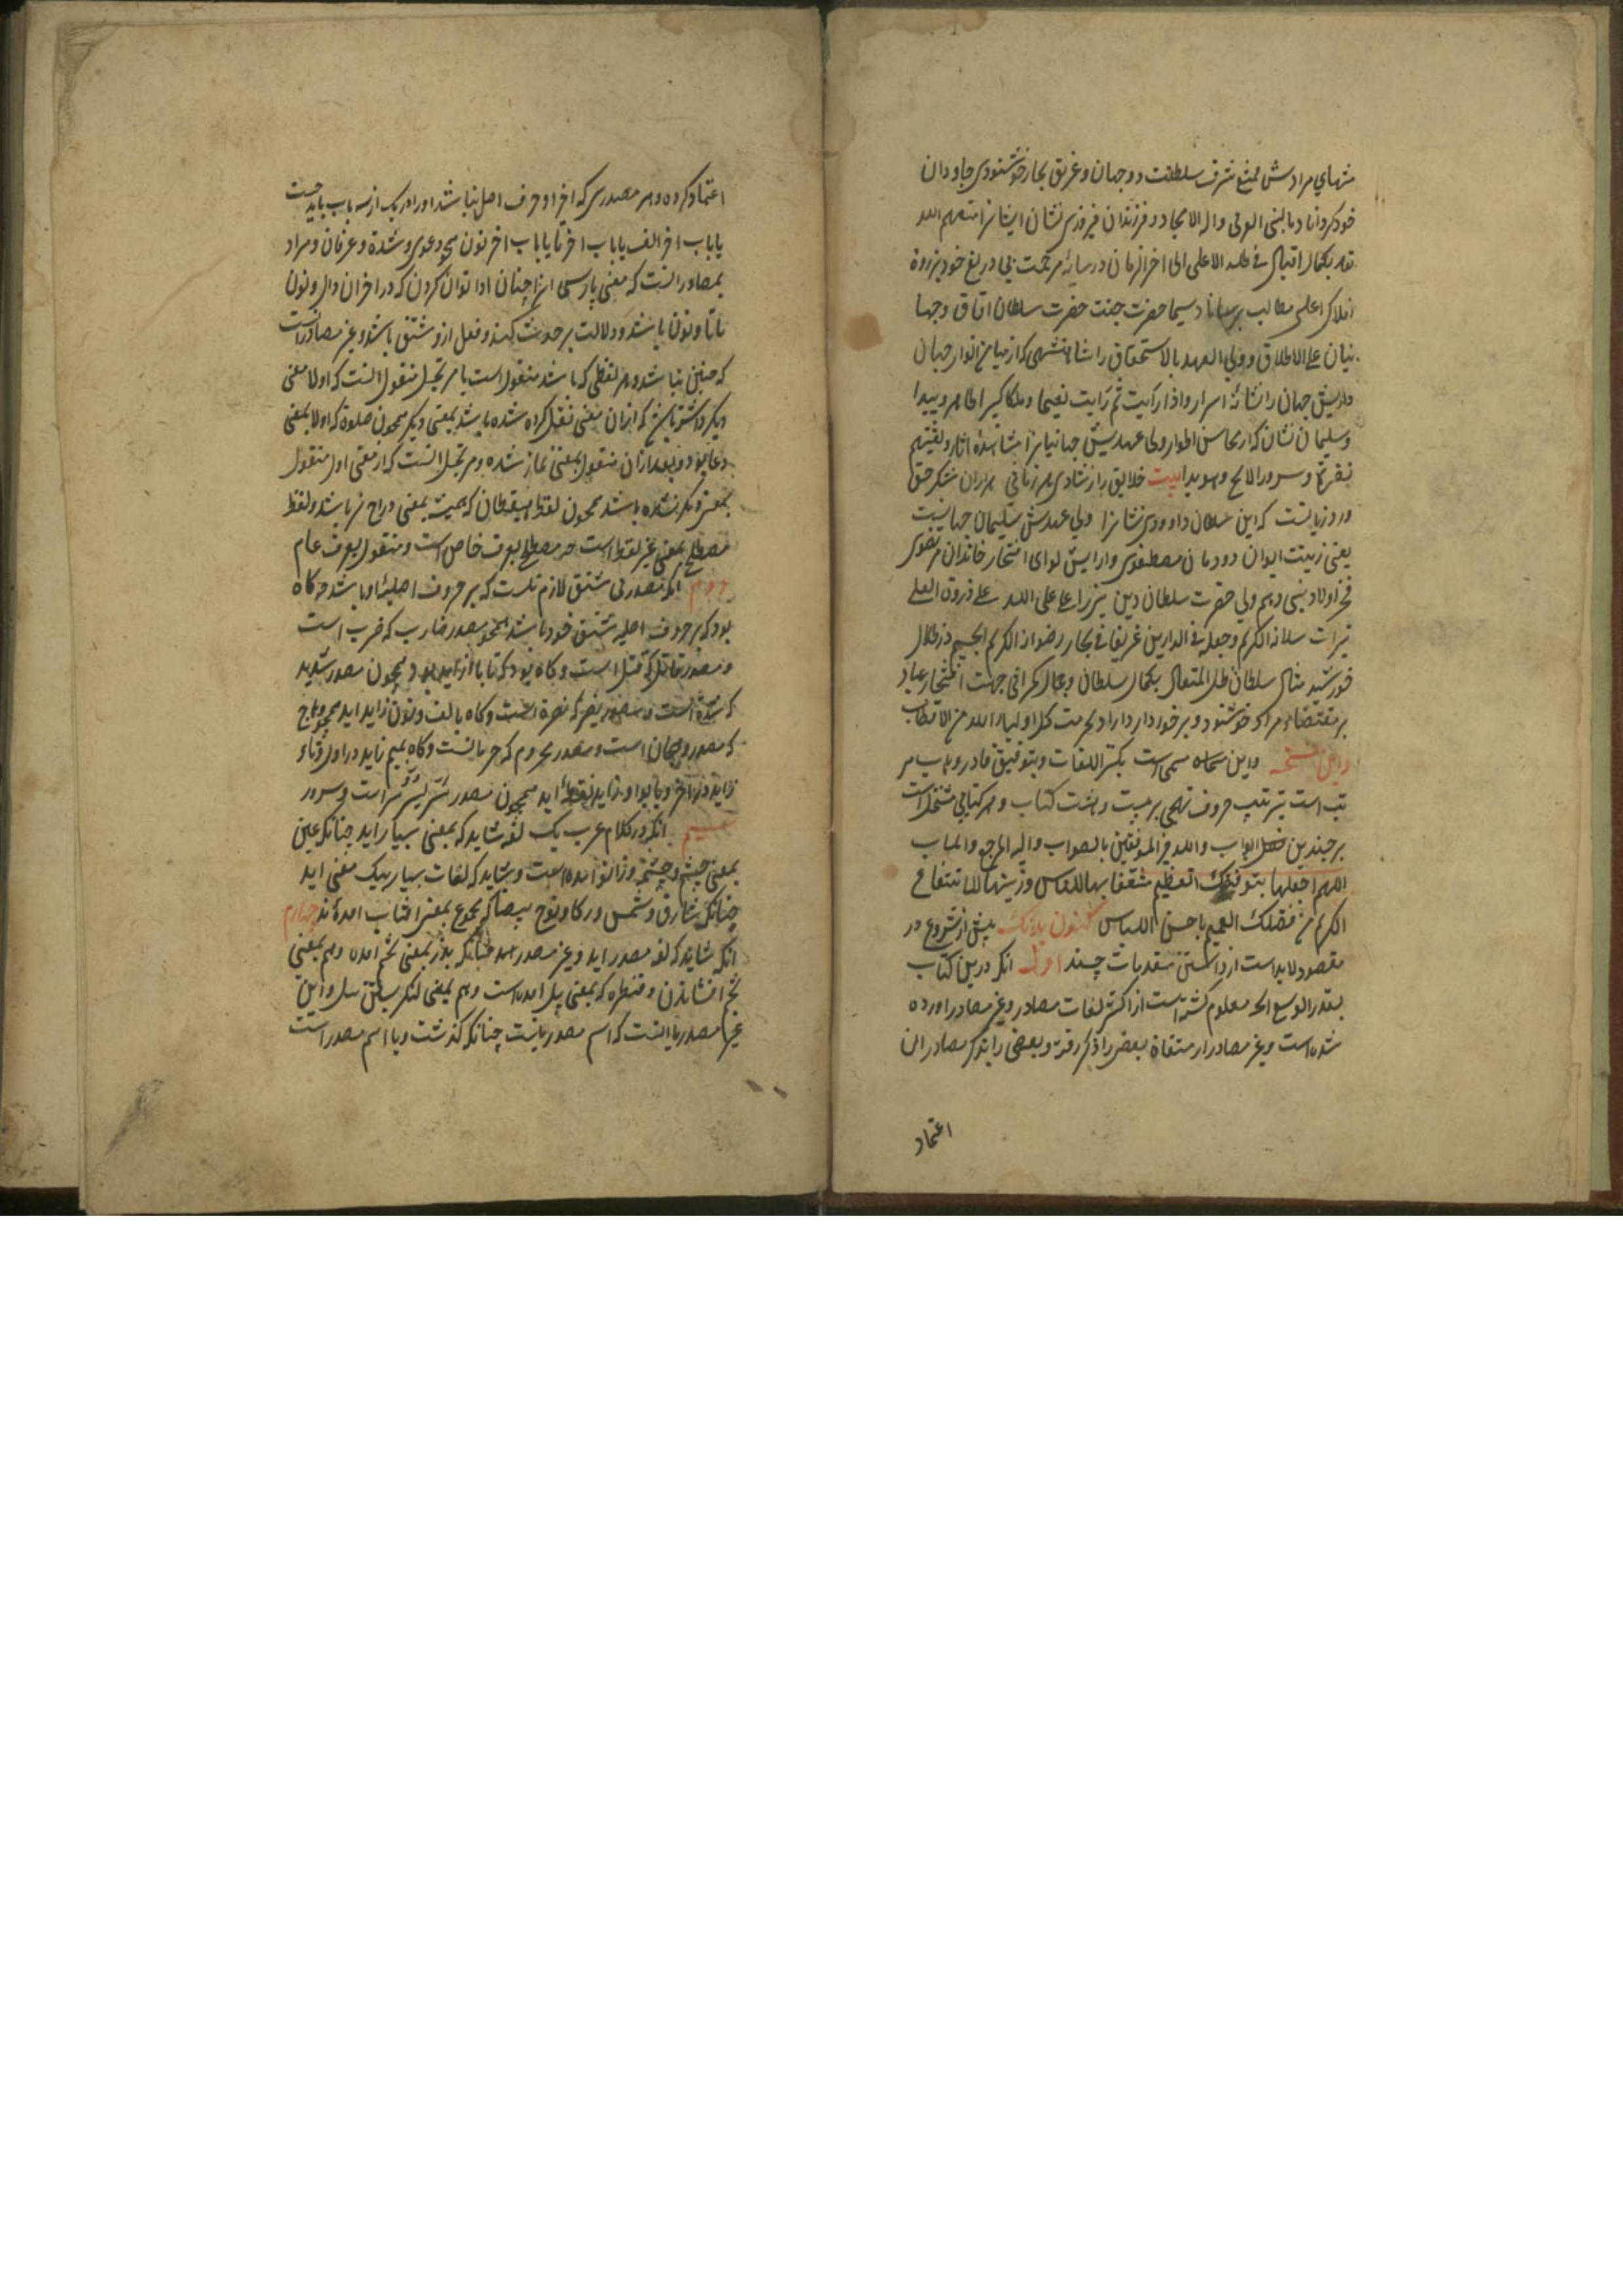 منتهای مرادش منبع شرف سلطنت دو جهان و غریق بحار خوشنودی جاودان
خود کرداناد بالنبی العربی واله الامجاد و فرزندان فیروزی نشان ایشانرا متعهم الله
تعالی بکمال اقبال فی ظله الاعلی الی اخر الزمان در سایهٔ مرحمت بی دریغ خود بر ذروهٔ
افلاک اعلی مطالب برساناد سیما حضرت جنت حضرت سلطان آفاق و جها
نیان علی الاطلاق و ولی العهد بالاستحقاق را شاهنشهی که از میامن انوار جهان
جهان را نشانهٔ اسرار و اذا رایت ثم رایت نعیما و ملکا کبیرا ظاهر و پیدا
و سلیمان نشان که از محاسن اطوار ولی عهدیش جهانیانرا مشاهدهٔ آثار و لقیهم
نضرة و سرورا لایح و هویدا بیت خلایق را ز شادی هر زمانی هزاران شکر حق
ورد زبانست که این سلطان داوودی نشانرا ولی عهدش سلیمان جهانست
یعنی زینت ایوان دودمان مصطفوی و ارایش لوای افتخار خاندان مرتضوی
فخر اولاد نبی و هم ولی حضرت سلطان دین میرزا علی اعلی الله علی ذروة العلی
سلطانه الکریم و جعله فی الدارین غریقا فی بحار رضوانه الکریم الجسیم در ظلال
خورشید مثال سلطان ظل المتعال بکمال سلطان و جمال کمرانی جهت افتخار عباد
بر مقتضاء مراد خوشنود و برخوردار داراد بحرمت کل اولیاء الله من الاقطاب
و این نسخه و این سماه مسمی است بکنز اللغات و بتوفیق قادر وهاب مر
تب است بترتیب حروف تهجی بر بیست و هشت کتاب و هر کتابی مشتملست
بر چندین فصل ابواب والله خیر الموفقین بالصواب والیه المرجع والمآب
اللهم اجعلها بتوفیقک العظیم منتفعا بها للناس و زینتها للانتفاع
الکریم من فضلک العمیم باحسن اللباس اکنون بدانکه پیش از شروع در
مقصود لابد است از دانستن مقدمات چند اول آنکه درین کتاب
بقدر الوسع انچه معلوم گشته است از اکثر لغات مصادر و غیر مصادر آورده
شده است و غیر مصادر از مشتقاة بعضی را ذکر رفته و بعضی را بذکر مصادر آن
اعتماد
اعتماد کرده و هر مصدری که اخر او حرف اصل نباشد او را در یک از سه باب باید جست
یا باب اخر الف یا باب اخر تا یا باب اخر نون همچو دعوی و شدة و عرفان و مراد
بمصادر انست که معنی پارسی انرا چنان ادا توان کردن که در اخر ان دال و نون
یا تا و نون باشد و دلالت بر حدث کند و فعل ازو مشتق باشد و غیر مصادر انست
که چنین نباشد و هر لفظی که باشد منقول است یا مرتجل منقول انست که اولا معنی
دیگر داشته باشد که از ان معنی نقل کرده شده باشد بمعنی دیگر همچون صلوة که اولا بمعنی
دعا بود و بعد از ان منقول بمعنی نماز شده و مرتجل انست که از معنی اول منقول
بمعنی دیگر نشده باشد همچون لفظ هیقطان که همیشه بمعنی دراج نر باشد و لفظ
مصطلح بمعنی غیر لفظ است چه مصطلح بعرف خاص است و منقول بعرف عام
دوم آنکه مصدر بی مشتق لازم نیست که بر حروف اصلیهٔ او باشد چه گاه
بود که بر حروف اصلیه مشتق خود باشد همچو مصدر ضارب که ضرب است
و مصدر قاتل که قتل است و گاه بود که تا یا الف زاید بود همچون مصدر شدید
که شدة است و مصدر ینصر که نصرة است و گاه بالف و نون زاید اید همچو
که مصدر است و مصدر محروم که حرمانست و گاه بمیم زاید در اول و تاء
زاید در آخر و یا بواو زاید فقط اید همچون مصدر سر یسر که مسرة است و سرور
سیم آنکه در کلام عرب یک لغة شاید که بمعنی بسیار اید چنانکه عین
بمعنی چشم و چشمه و زانو امده است و شاید که لغات بسیار بیک معنی اید
چنانکه شارق و شمس و ذکا و یوح و بیضا که مجموع بمعنی افتاب امده اند چهارم
آنکه شاید که لغة مصدر اید و غیر مصدر اید چنانکه بذر بمعنی تخم امده و هم بمعنی
تخم افشاندن و قنطره که بمعنی پل امده است و هم بمعنی بستن پل و این
غیر مصدر یا انست که اسم مصدر نیست چنانکه گذشت و یا اسم مصدر است